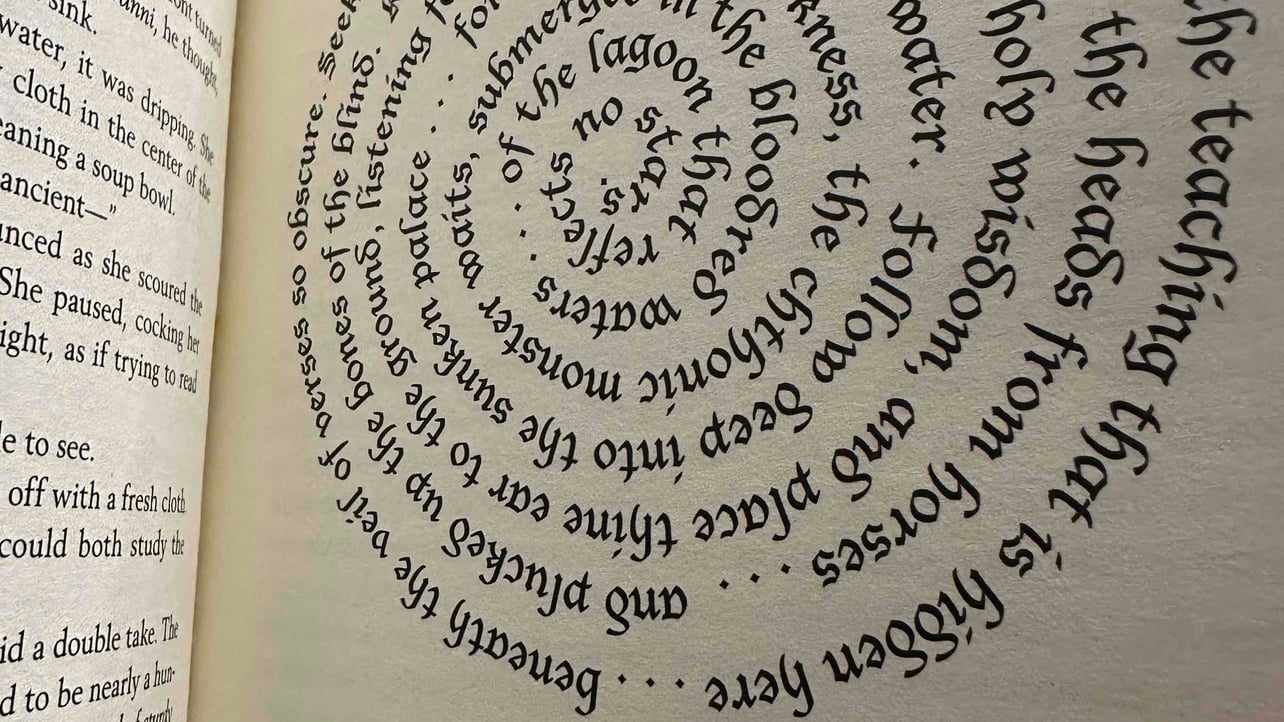 sink.
ont turned
anni, he thought,
water, it was dripping. She
cloth in the center of the
eaning a soup bowl.
ancient—”
unced as she scoured the
She paused, cocking her
ight, as if trying to read
le to see.
off with a fresh cloth
could both study the
id a double take. The
d to be nearly a hun-
the teaching that is hidden here . . . beneath the veil of verses so obscure. Seek
the heads from horses . . . and plucked up the bones of the blind.
holy wisdom, and place thine ear to the ground, listening fo
water. Follow deep into the sunken palace . . . for
kness, the chthonic monster waits, submerge
in the bloodred waters . . . of the lagoon that reflects no stars.